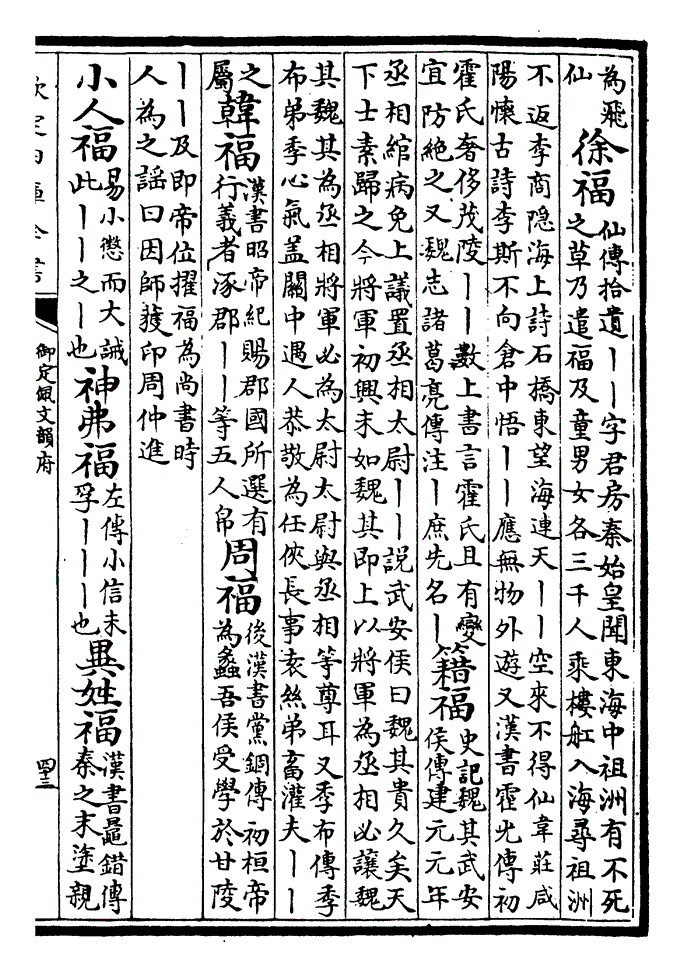 為飛
仙
徐福
仙傳拾遺丨丨字君房秦始皇聞東海中祖洲有不死
之草乃遣福及童男女各三千人乘樓舡入海尋祖洲
不返李商隱海上詩石橋東望海連天丨丨空來不得仙韋莊咸
陽懷古詩李斯不向倉中悟丨丨應無物外遊又漢書霍光傳初
霍氏奢侈茂陵丨丨數上書言霍氏且有變
宜防絶之又魏志諸葛亮傳注丨庶先名丨
籍福
史記魏其武安
侯傳建元元年
丞相綰病免上議置丞相太尉丨丨説武安侯曰魏其貴久矣天
下士素歸之今將軍初興未如魏其即上以將軍為丞相必讓魏
其魏其為丞相將軍必為太尉太尉與丞相等尊耳又季布傳季
布弟季心氣盖關中遇人恭敬為任俠長事袁絲弟畜灌夫丨丨
之
屬
韓福
漢書昭帝紀賜郡國所選有
行義者涿郡丨丨等五人帛
周福
後漢書黨錮傳初桓帝
為蠡吾侯受學於甘陵
丨丨及即帝位擢福為尚書時
人為之謡曰因師獲印周仲進
小人福
易小懲而大誡
此丨丨之丨也
神弗福
左傳小信未
孚丨丨丨也
異姓福
漢書鼂錯傳
秦之末塗親
欽定四庫全書
御定佩文韻府
四十三